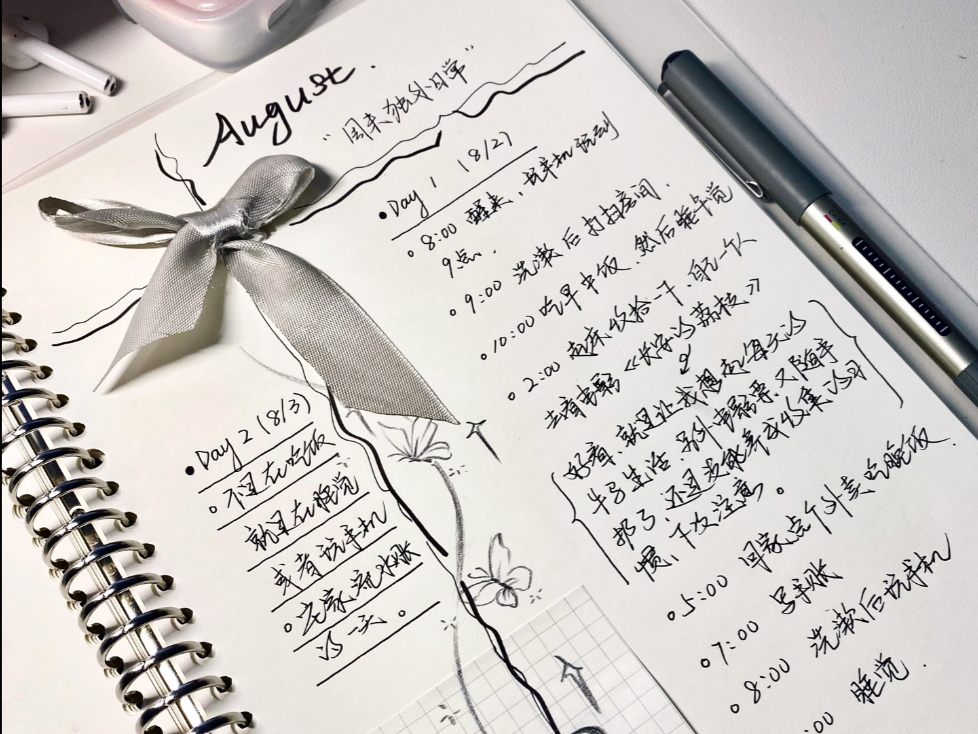 August.
"周末独处日常"
Day 1 (8/2)
8:00 醒来、玩手机玩到
9点.
9:00 洗漱后打扫房间.
10:00 吃早中饭、然后睡午觉
2:00 起床收拾一下,自己一个人
去看电影《长安的荔枝》
好看,就是让我想起每天的
牛马生活,另外电影票又随手
扔了,还是没能养成收集的习
惯,下次注意。
5:00 回家点个外卖吃晚饭.
7:00 写手账
8:00 洗漱后玩手机
:00 睡觉.
Day 2 (8/3)
不是在吃饭
就是在睡觉
或者玩手机
宅家
的一天。